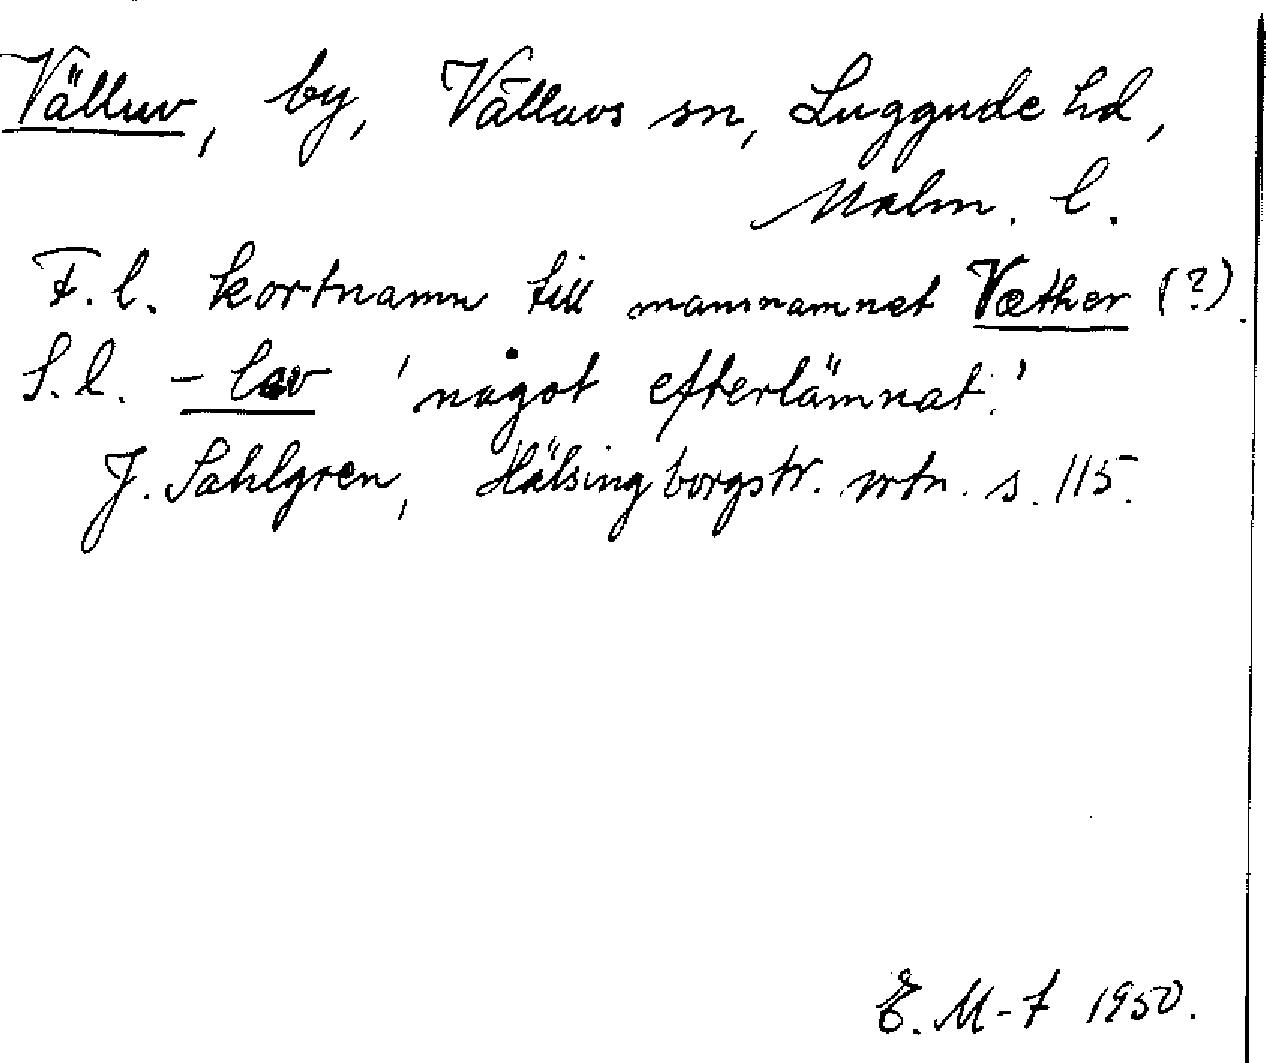 Välluv, by, Välluvs sn, Luggude hd,
Malm. l.
F.l. kortnamn till mansnamnet Væther (?).
S.l. -lev 'något efterlämnat.'
J. Sahlgren, Hälsingborgstr. ortn. s. 115.
E. M-f 1950.